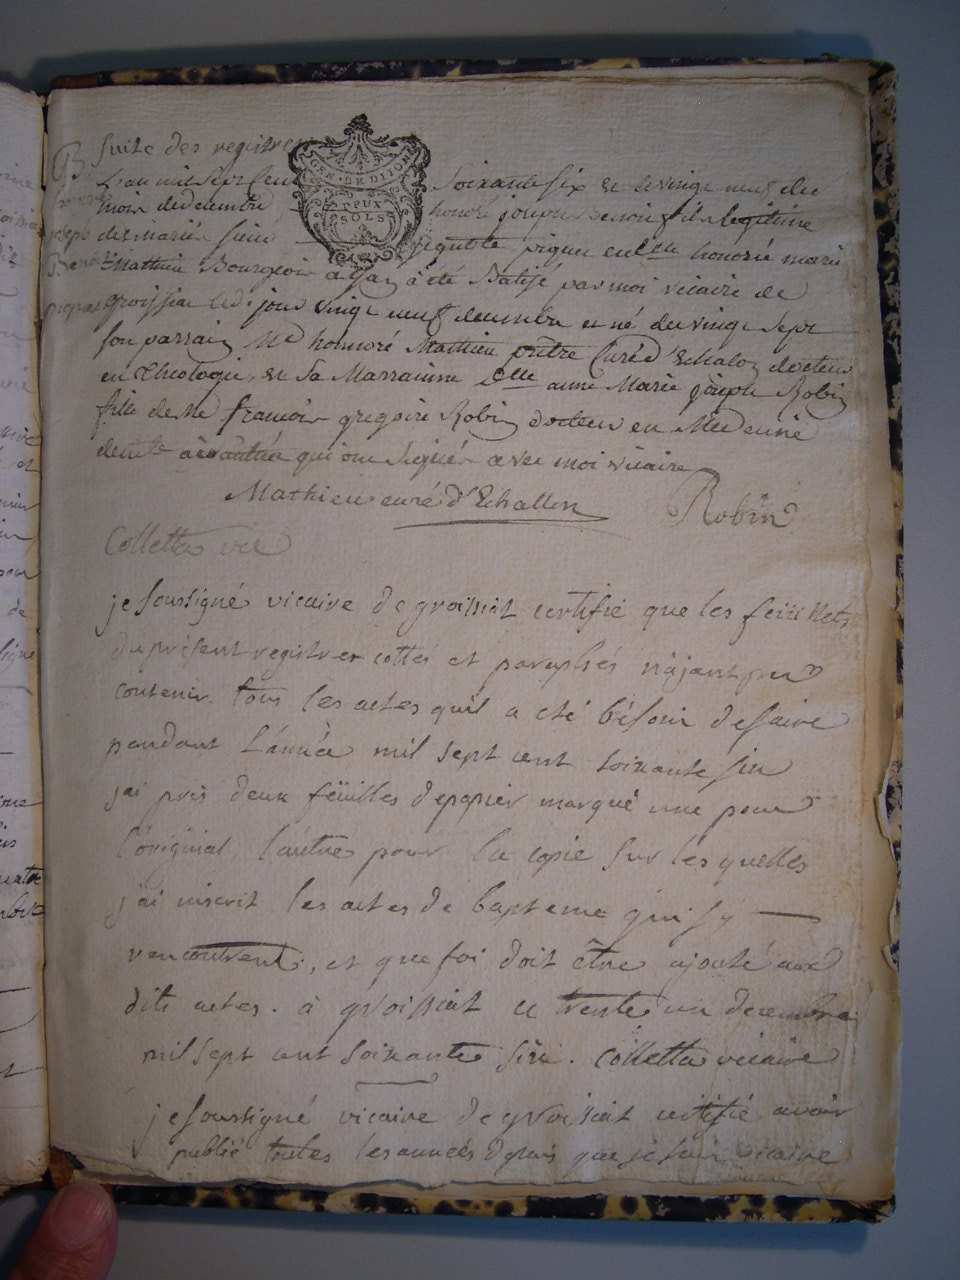 Suite des registres
B
L'an mil sept cent soixante six & le vingt neuf du
mois de decembre honoré joseph benoit fils legitime
joseph
des mariés sieur pique et honorée marie
Benoit
Mathieu Bourgeois a été Batisé par moi vicaire de
groissia ledi jour vingt neuf decembre et né du vingt sept
son parrain Me honnoré Mathieu prêtre Curé d'Echalon docteur
en Theologie, & sa Marrainne dlle anne Marie joseph Robin
fille de Me francois gregoire Robin docteur en Medecine
qui ont signés avec moi vicaire
Mathieu curé d'Echallon Robin
Colletta vic
je soussigné vicaire de groissiat certifie que les feüillets
du présent registres cottés et paraphés n'ajant pu
contenir tous les actes qu'il a eté bésoin de faire
pandant L'année mil sept cent soixante six
j'ai pris deux feüilles de papier marqué une pour
l'original, l'autre pour la copie sur les quelles
j'ai inscrit les actes de bapteme qui s'y
rencontrent, et que foi doit être ajouté aux
dits actes. à groissiat ce trente un decembre
mil sept cent soixante six. Colletta vicaire
je soussigné vicaire de groissiat certifie avoir
publié toutes les années depuis que je suis vicaire
GEN. DE DIJON
DEUX
SOLS